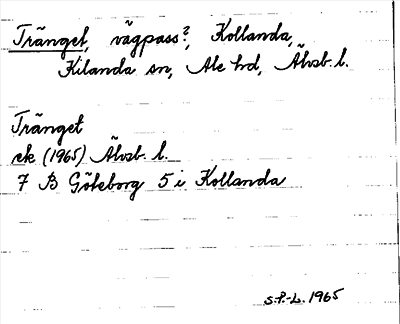 Tränget, vägpass?, Kollanda,
Kilanda sn, Ale hd, Älvsb. l.
Tränget
ek (1965) Älvsb. l.
7 B Göteborg 5 i Kollanda
S.P.-L. 1965